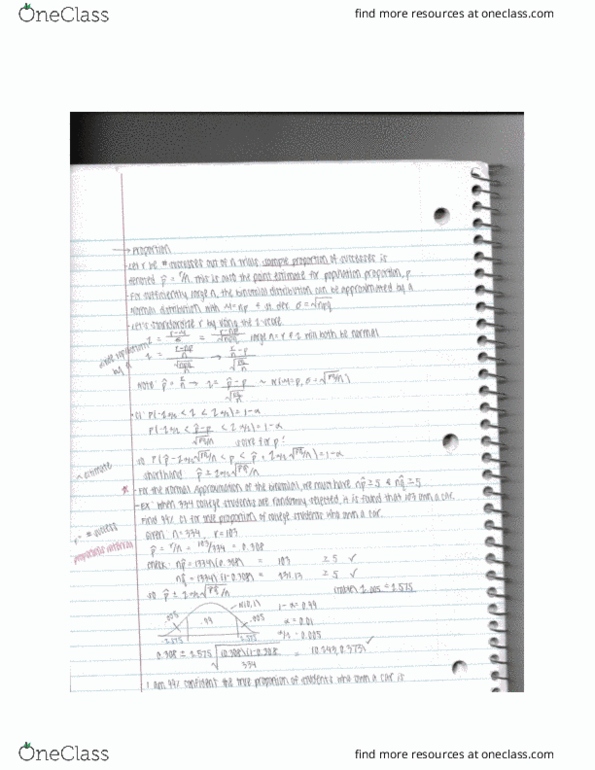 OneClass
find more resources at oneclass.com
→ Proportion
- Let r be # successes out of n trials. sample proportion of successes is
denoted p̂ = r/n. This is also the point estimate for population proportion, p.
- For sufficiently large n, the binomial distribution can be approximated by a
normal distribution with μ=np & st. dev. σ=√npq
- Let's standardize r by using the z-score.
z = r-μ/σ = r-np/√npq large n = r & z will both be normal
by n
z = r-np/n / √npq/n → r/n - p / √pq/n
Note: p̂ = r/n → z = p̂-p / √pq/n ~ N(μ=p, σ=√pq/n)
- CI: P(-zα/2 < z < zα/2) = 1-α
P(-zα/2 < p̂-p / √pq/n < zα/2) = 1-α
solve for p!
so P(p̂-zα/2√pq/n < p < p̂+zα/2√pq/n) = 1-α
^ estimate
shorthand p̂ ± zα/2√pq/n
* - For the normal approximation of the binomial, we must have np̂ ≥ 5 & nq̂ ≥ 5
- Ex: When 334 college students are randomly selected, it is found that 103 own a car.
Find 99% CI for true proportion of college students who own a car.
"r" = success
Given n=334, r=103
p̂ = r/n = 103/334 = 0.308
check: np̂ = (334)(0.308) = 103 ≥ 5 ✓
nq̂ = (334)(1-0.308) = 231.13 ≥ 5 ✓
so p̂ ± zα/2√pq/n
z.005 = 2.575
N(0,1)
1-α = 0.99
.005 .99 .005
α = 0.01
-2.575 2.575
α/2 = 0.005
0.308 ± 2.575 √(0.308)(1-0.308)/334 = (0.243, 0.373) ✓
I am 99% confident the true proportion of students who own a car is
OneClass
find more resources at oneclass.com